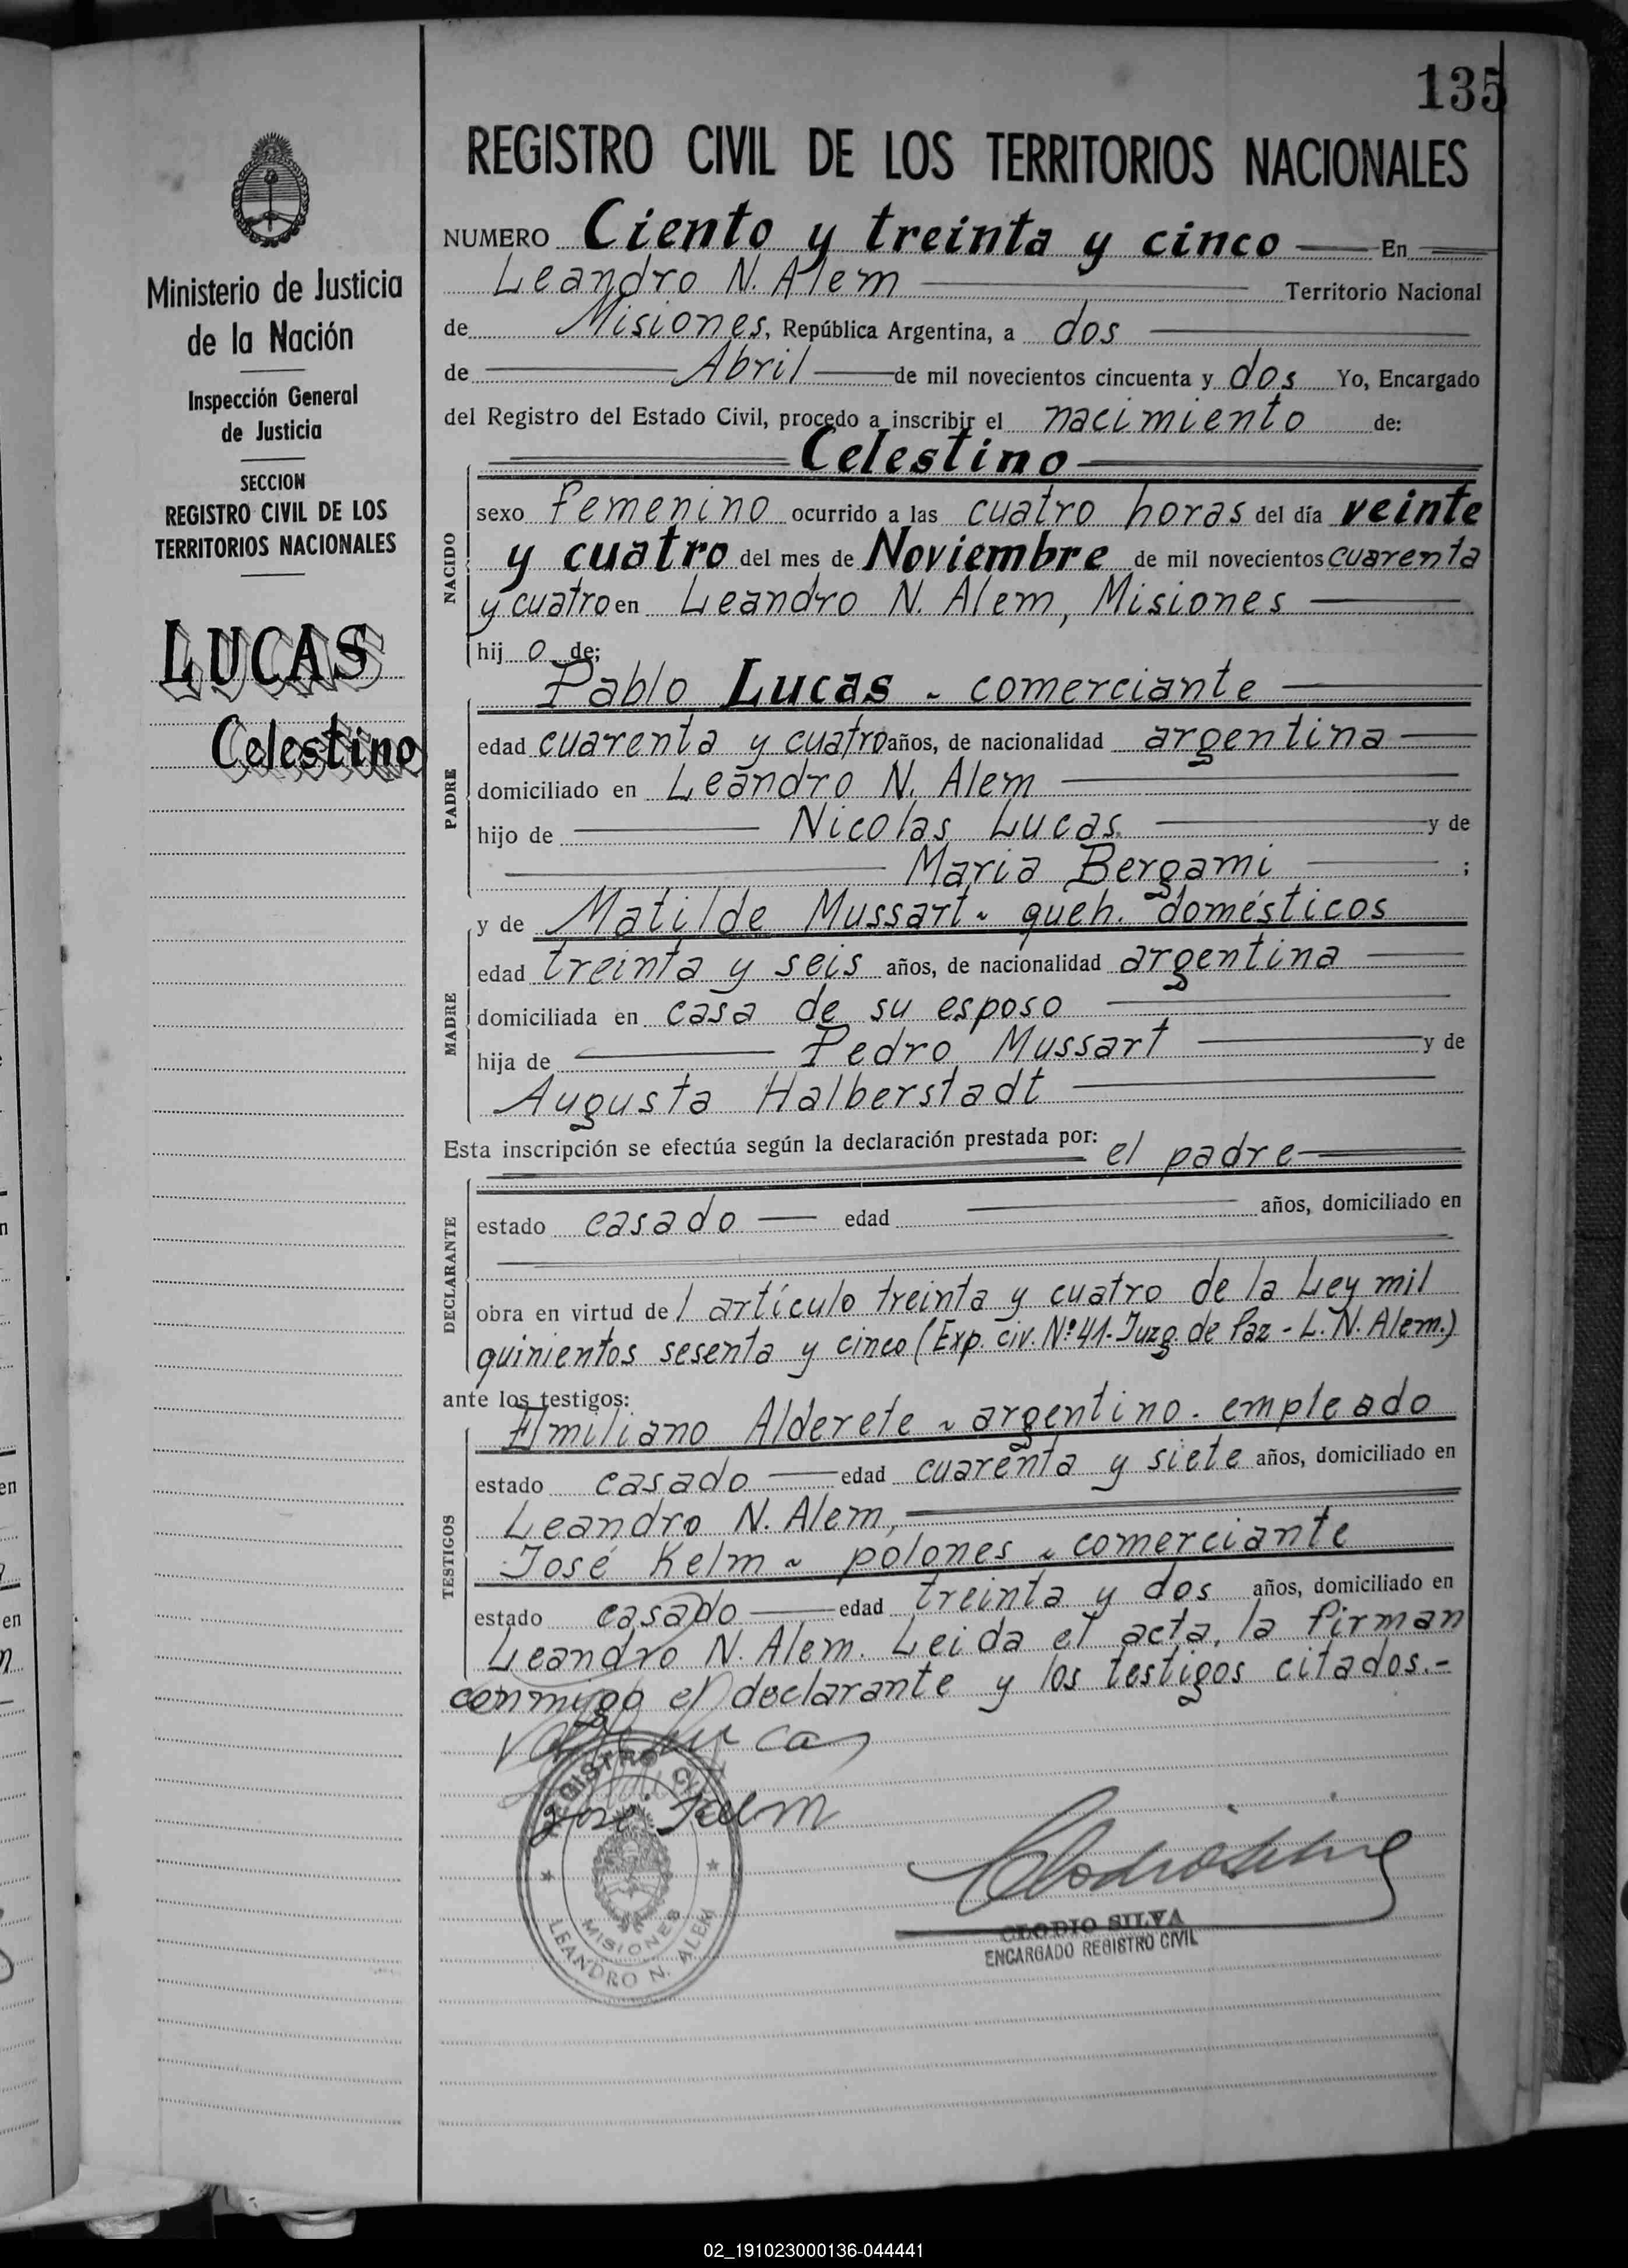 135
REGISTRO CIVIL DE LOS TERRITORIOS NACIONALES
NUMERO Ciento y treinta y cinco En
Leandro N. Alem Territorio Nacional
de Misiones, República Argentina, a dos
de Abril de mil novecientos cincuenta y dos Yo, Encargado
del Registro del Estado Civil, procedo a inscribir el nacimiento de:
Celestino
NACIDO
sexo femenino ocurrido a las cuatro horas del día veinte
y cuatro del mes de Noviembre de mil novecientos cuarenta
y cuatro en Leandro N. Alem, Misiones
hij o de;
Pablo Lucas - comerciante
PADRE
edad cuarenta y cuatro años, de nacionalidad argentina
domiciliado en Leandro N. Alem
hijo de Nicolas Lucas y de
Maria Bergami ;
y de Matilde Mussart - queh. domésticos
MADRE
edad treinta y seis años, de nacionalidad argentina
domiciliada en casa de su esposo
hija de Pedro Mussart y de
Augusta Halberstadt
Esta inscripción se efectúa según la declaración prestada por: el padre
DECLARANTE
estado casado edad años, domiciliado en
obra en virtud de l artículo treinta y cuatro de la Ley mil
quinientos sesenta y cinco (Exp. civ. Nº 41-Juzg. de Paz - L. N. Alem.)
ante los testigos:
TESTIGOS
Emiliano Alderete - argentino - empleado
estado casado edad cuarenta y siete años, domiciliado en
Leandro N. Alem,
José Kelm - polones - comerciante
estado casado edad treinta y dos años, domiciliado en
Leandro N. Alem. Leida el acta, la firman
conmigo el declarante y los testigos citados.-
Lucas
José Kelm
REGISTRO CIVIL
MISIONES
LEANDRO N. ALEM
Clodio Silva
CLODIO SILVA
ENCARGADO REGISTRO CIVIL
Ministerio de Justicia
de la Nación
Inspección General
de Justicia
SECCION
REGISTRO CIVIL DE LOS
TERRITORIOS NACIONALES
LUCAS
Celestino
02_191023000136-044441